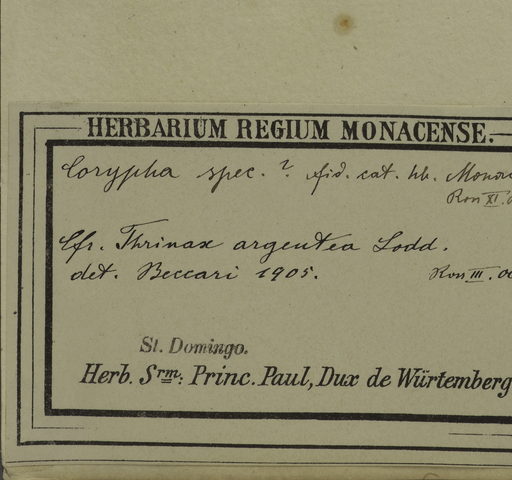 HERBARIUM REGIUM MONACENSE.
Corypha spec. ? fid. cat. hb.
Ross XI.
Cfr. Thrinax argentea Lodd.
det. Beccari 1905.
Ross III. 06
St. Domingo.
Herb. Srm: Princ. Paul, Dux de Würtemberg